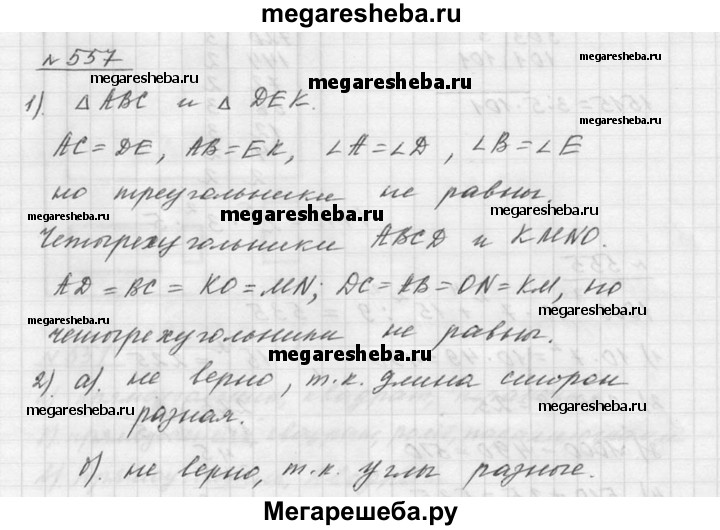 megaresheba.ru
№ 557
megaresheba.ru
1). Δ ABC и Δ DEK.
megaresheba.ru
AC = DE, AB = EK, ∠A = ∠D, ∠B = ∠E
megaresheba.ru
megaresheba.ru
но треугольники не равны.
megaresheba.ru
megaresheba.ru
megaresheba.ru
Четырехугольники ABCD и KMNO.
AD = BC = KO = MN; DC = AB = ON = KM, но
megaresheba.ru
megaresheba.ru
четырехугольники не равны.
megaresheba.ru
2). а). не верно, т.к. длина сторон
megaresheba.ru
megaresheba.ru
разная.
б). не верно, т.к. углы разные.
megaresheba.ru
megaresheba.ru
Мегарешеба.ру